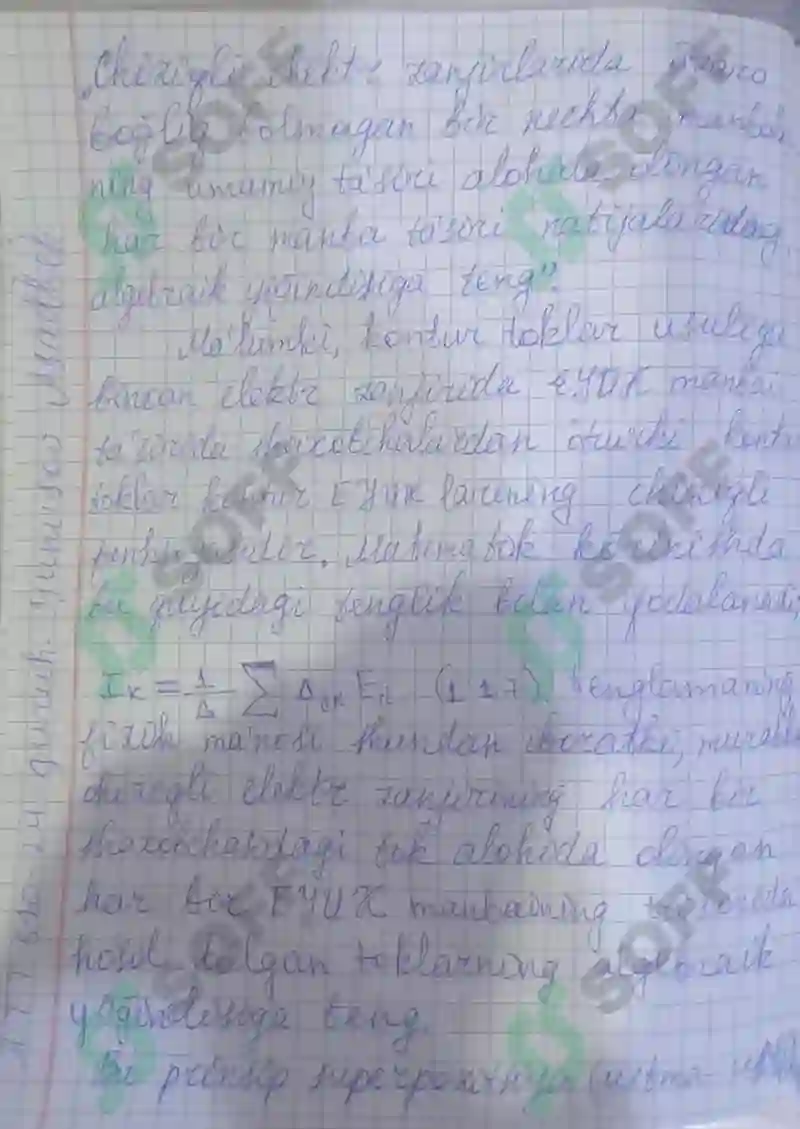 „Chiziqli elektr zanjirlarida o'zaro
bog'liq bo'lmagan bir nechta manba
ning umumiy ta'siri alohida olingan
har bir manba ta'siri natijalarining
algebraik yig'indisiga teng".
Ma'lumki, kontur toklar usuliga
binoan elektr zanjirida E.YUK manbai
ta'sirida shaxobchalardan o'tuvchi
toklar EYUK larining chiziqli
funksiyasidir. Matematik ko'rinishda
bu quyidagi tenglik bilan ifodalanadi,
Iк = 1/Δ ∑ Δ E (1.17). Tenglamaning
fizik ma'nosi shundan iboratki, murakkab
chiziqli elektr zanjirining har bir
shaxobchasidagi tok alohida olingan
har bir EYUK manbaining ta'sirida
hosil bo'lgan toklarning algebraik
yig'indisiga teng.
Bu prinsip superpozitsiya (ustma-ust
guruh. Yunusov
SOFF
SOFF
SOFF
SOFF
SOFF
SOFF